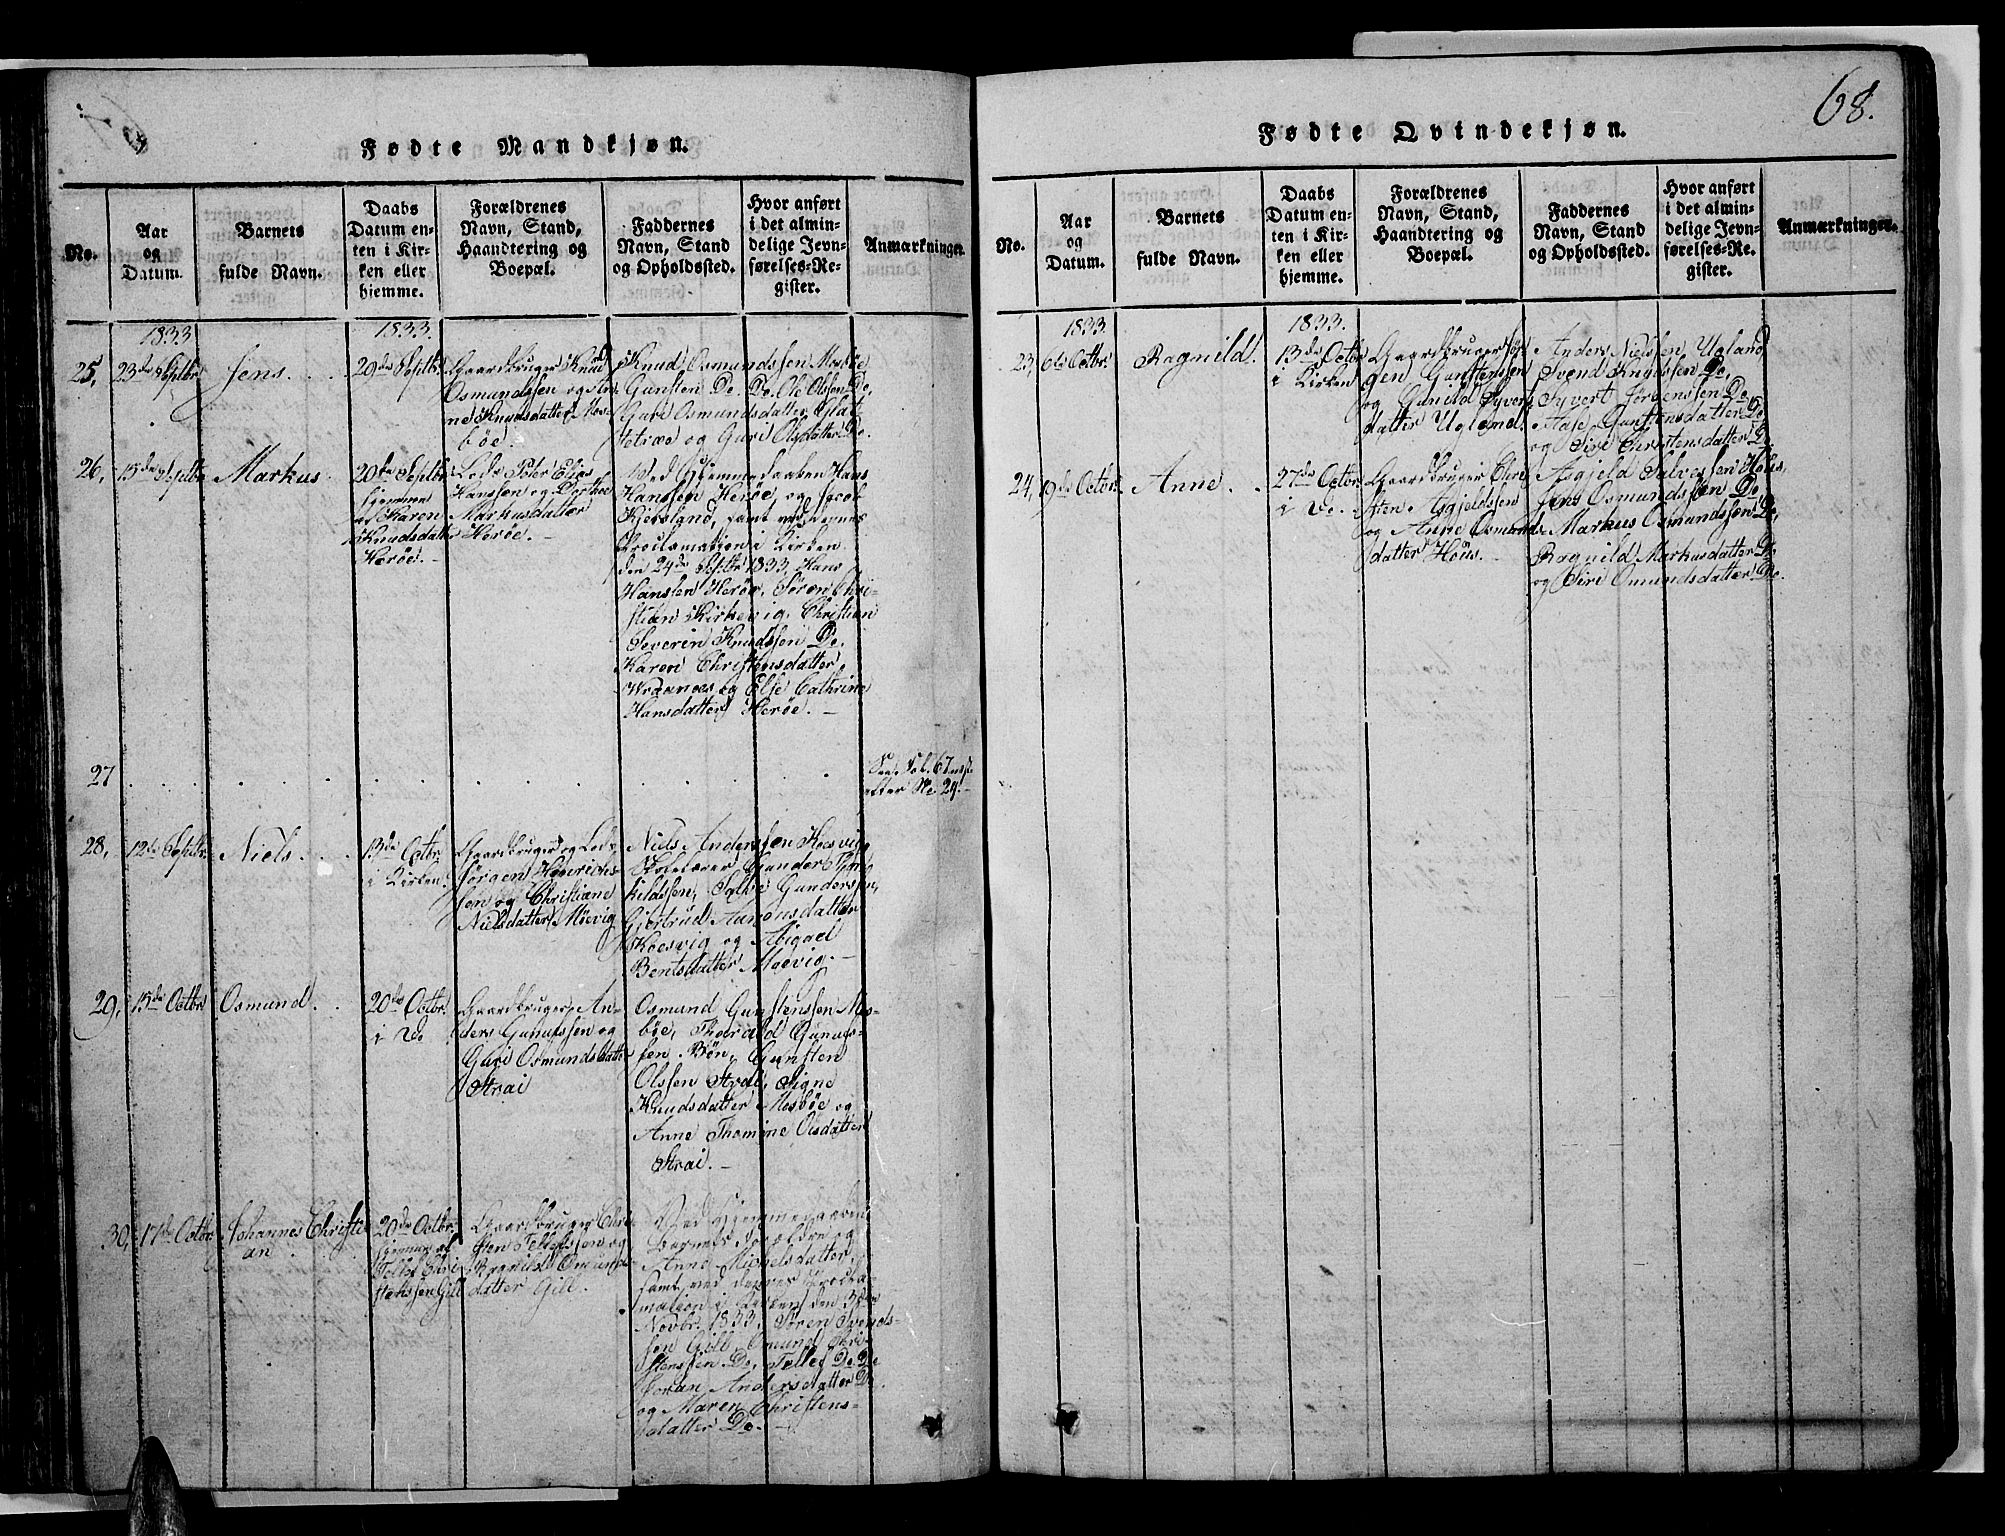 68.
Fødte Mandkjøn.
No.
Aar
og
Datum.
Barnets
fulde Navn.
Daabs
Datum en-
ten i Kir-
ken eller
hjemme.
Forældrenes
Navn, Stand,
Haandtering og
Boepæl.
Faddernes
Navn, Stand
og Opholdssted.
Hvor anført
i det almin-
delige Jevn-
førelses-Re-
gister.
Anmærkninger.
1833
1833.
25,
23de Septbr
Jens.
29de Septbr
Gaardbruger Knud
Osmundssen og An-
ne Knudsdatter Mos-
bøe.
Knud Osmundssen Mosbøe
Gunsten Do. Do. Ole Olsen Do.
Guri Osmundsdatter Slat-
tetræe og Guri Olsdatter Do.
26,
15de Septbr
Markus
20de Septbr
hjemme
af Karen
Knudsdatter
Herøe.
Lods Peter Elias
Hanssen og Dorthe
Markusdatter
Herøe.
Ved Hjemmedaaben Hans
Hanssen Herøe, og Jacob
Kjersland, samt ved dennes
Proclamation i Kirken
den 24de Septbr 1833, Hans
Hanssen Herøe, Søren Chri-
stian Kirkevig, Christian
Severin Knudssen Do.
Karen Christensdatter
og Else Cathrine
Hansdatter Herøe.
27
See Fol. 67
efter No 24.
28,
12de Septbr
Niels.
13de Octbr
i Kirken.
Gaardbruger og Lods
Jørgen Henrichs-
sen og Christiane
Nielsdatter Møevig
Niels Anderssen Koesvig
Skolelærer Gunder Ther-
kildssen, Salve Gunderssen,
Giertrud Aanonsdatter
Koesvig og Abigael
Bentsdatter Møevig.
29,
15de Octbr
Osmund.
20de Octbr
i Do
Gaardbruger An-
ders Gunufssen og
Guri Osmundsdatter
Strai
Osmund Gunstenssen Mos-
bøe, Tharald Gunufs-
sen Bøn, Gunsten
Olssen Strai, Signe
Knudsdatter Mosbøe og
Anne Thomine Olsdatter
Strai.
30,
17de Octbr
Johannes Christi-
an
20de Octbr
hjemme af
Tellef Chri-
stenssen Gill
Gaardbruger Chri-
sten Tellefssen og
Ragnild Omunds-
datter Gill.
Ved Hjemmedaaben
Barnets Forældre og
Anne Michelsdatter,
samt ved dennes Procla-
mation i Kirken den 3de
Novbr. 1833, Søren Svends-
sen Gill, Omund Chri-
stenssen Do, Tellef Do Do
Joran Andersdatter Do.
og Maren Christens-
datter Do.
Fødte Qvindekjøn.
No.
Aar
og
Datum.
Barnets
fulde Navn.
Daabs
Datum en-
ten i Kir-
ken eller
hjemme.
Forældrenes
Navn, Stand,
Haandtering og
Boepæl.
Faddernes
Navn, Stand
og Opholdssted.
Hvor anført
i det almin-
delige Jevn-
førelses-Re-
gister.
Anmærkninger.
1833
1833.
23,
6te Octbr.
Ragnild.
13de Octbr
i Kirken
Gaardbruger Jør-
gen Gunstenssen
og Gunild Syverts-
datter Ugland.
Anders Nielssen Ugland
Svend Knudssen Do,
Syvert Jørgenssen Do
Aase Gunstensdatter Do
og Siri Christensdatter Do
24,
19de Octbr.
Anne.
27de Octbr.
i Do.
Gaardbruger Chri-
sten Asgjeldssen
og Anne Osmunds-
datter Hoüs.
Asgjeld Salvessen Hoüs,
Jens Osmundssen Do.
Markus Osmundssen Do,
Ragnild Markusdatter Do
og Siri Omundsdatter Do.